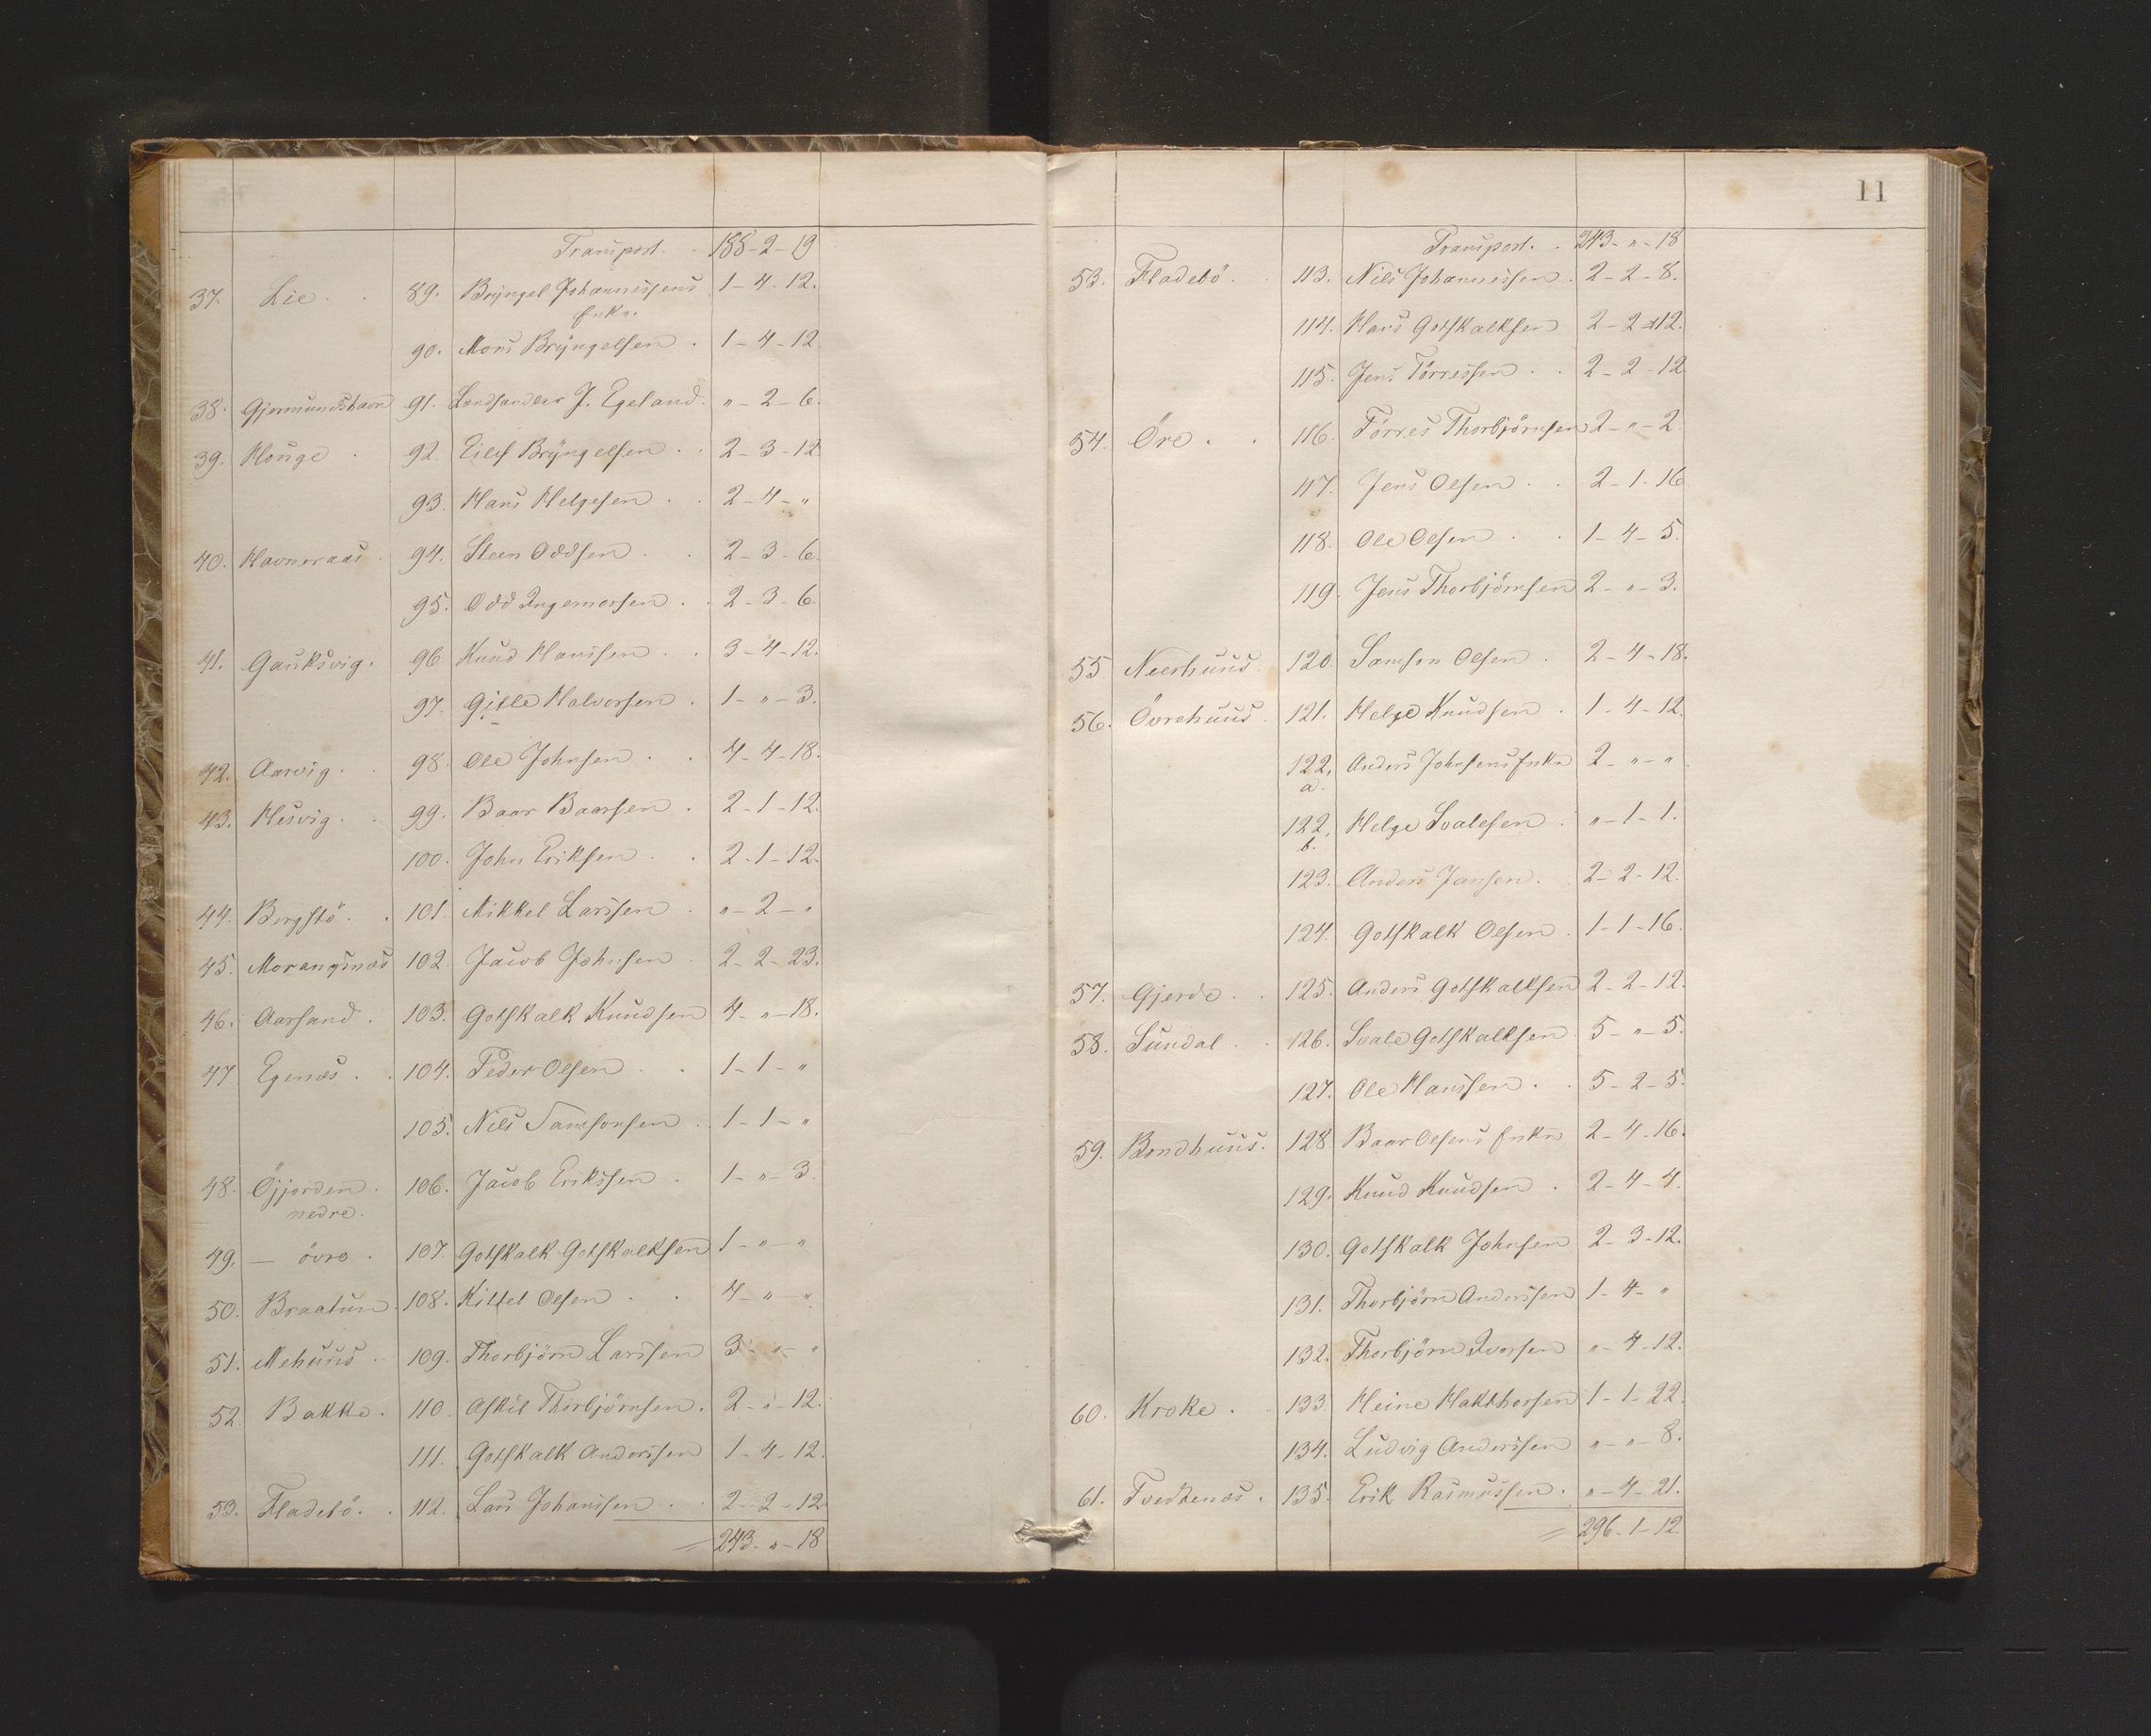 Transport. . 188-2-19
37. Lie. . 89. Bryngel Johannessens 1-4-12.
Enke.
90. Mons Bryngelsen . 1-4-12.
38. Gjermundshavn 91. Landhandler J. Egeland. "-2-6.
39. Houge . 92. Eilef Bryngelsen . . 2-3-12.
93. Hans Helgesen . . 2-4-"
40. Havneraas . 94. Steen Oddsen . . 2-3-6.
95. Odd Ingemorsen . . 2-3-6.
41. Gauksvig. 96 Knud Hanssen . . 3-4-12.
97. Gitle Halvorsen . 1-"-3.
42. Aarvig. . 98. Ole Johnsen . . 4-4-18.
43. Hesvig. . 99. Baar Baarsen . 2-1-12.
100. John Eriksen . . 2-1-12.
44. Bergstö. . 101. Mikkel Larssen . "-2-"
45. Morangsnæs 102. Jacob Johnsen . 2-2-23.
46. Aarsand . 103. Gotskalk Knudsen 4-"-18.
47 Egenæs. . 104. Peder Olsen . . 1-1-"
105. Nils Samsonsen . 1-1-"
48. Öjjorden. 106. Jacob Erikssen . 1-"-3.
nedre.
49. — övre . 107. Gotskalk Gotskalksen 1-"-"
50. Braatun 108. Kittel Olsen . . 4-"-"
51. Mehuus . 109. Thorbjörn Larssen 3-"-"
52. Bakke. 110. Askil Thorbjörnsen. 2-"-12.
111. Gotskalk Anderssen 1-4-12.
53. Fladebö. . 112. Lars Johanssen . . 2-2-12
= 243-"-18
11
Transport. . 243-"-18
53. Fladebö. . 113. Nils Johannessen . 2-2-8.
114. Hans Gotskalksen 2-2-12.
115. Jens Törressen . . 2-2-12
54. Öre . . 116. Törres Thorbjörnsen 2-"-2.
117. Jens Olsen . . 2-1-16
118. Ole Olsen . . 1-4-5.
119. Jens Thorbjörnsen 2-"-3.
55. Neerhuus. 120. Samson Olsen . 2-4-18.
56. Övrehuus . 121. Helge Knudsen . 1-4-12.
122. Anders Johnsens Enke 2-"-"
a.
122. Helge Svalesen . "-1-1.
b.
123. Anders Jansen. . 2-2-12.
124. Gotskalk Olsen . 1-1-16.
57. Gjerde . . 125. Anders Gotskalksen 2-2-12.
58. Sundal . . 126. Svale Gotskalksen 5-"-5.
127. Ole Hanssen . . 5-2-5.
59. Bondhuus. 128. Baar Olsens Enke 2-4-16.
129. Knud Knudsen . 2-4-4.
130. Gotskalk Johnsen 2-3-12.
131. Thorbjörn Anderssen 1-4-"
132. Thorbjörn Iversen "-4-12.
60. Kroke. . 133. Heine Hakthorsen 1-1-22.
134. Ludvig Anderssen "-"-8.
61. Tvedtenæs . 135. Erik Rasmussen . "-4-21.
= 296-1-12.